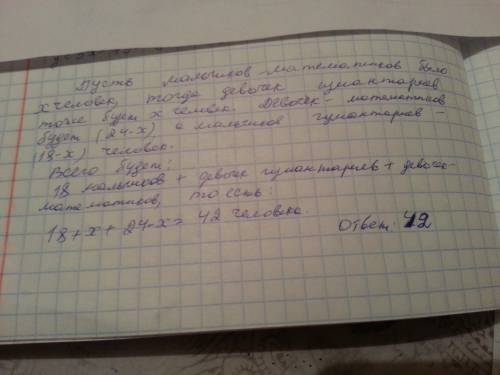 Пусть мальчиков-математиков было
x человек, тогда девочек гуманитариев
тоже будет x человек. Девочек-математиков
будет (24-x), а мальчиков гуманитариев -
18-x) человек.
Всего будет:
18 мальчиков + девочек гуманитариев + девочек-
математиков, то есть:
18+x+24-x= 42 человека.
Ответ: 42